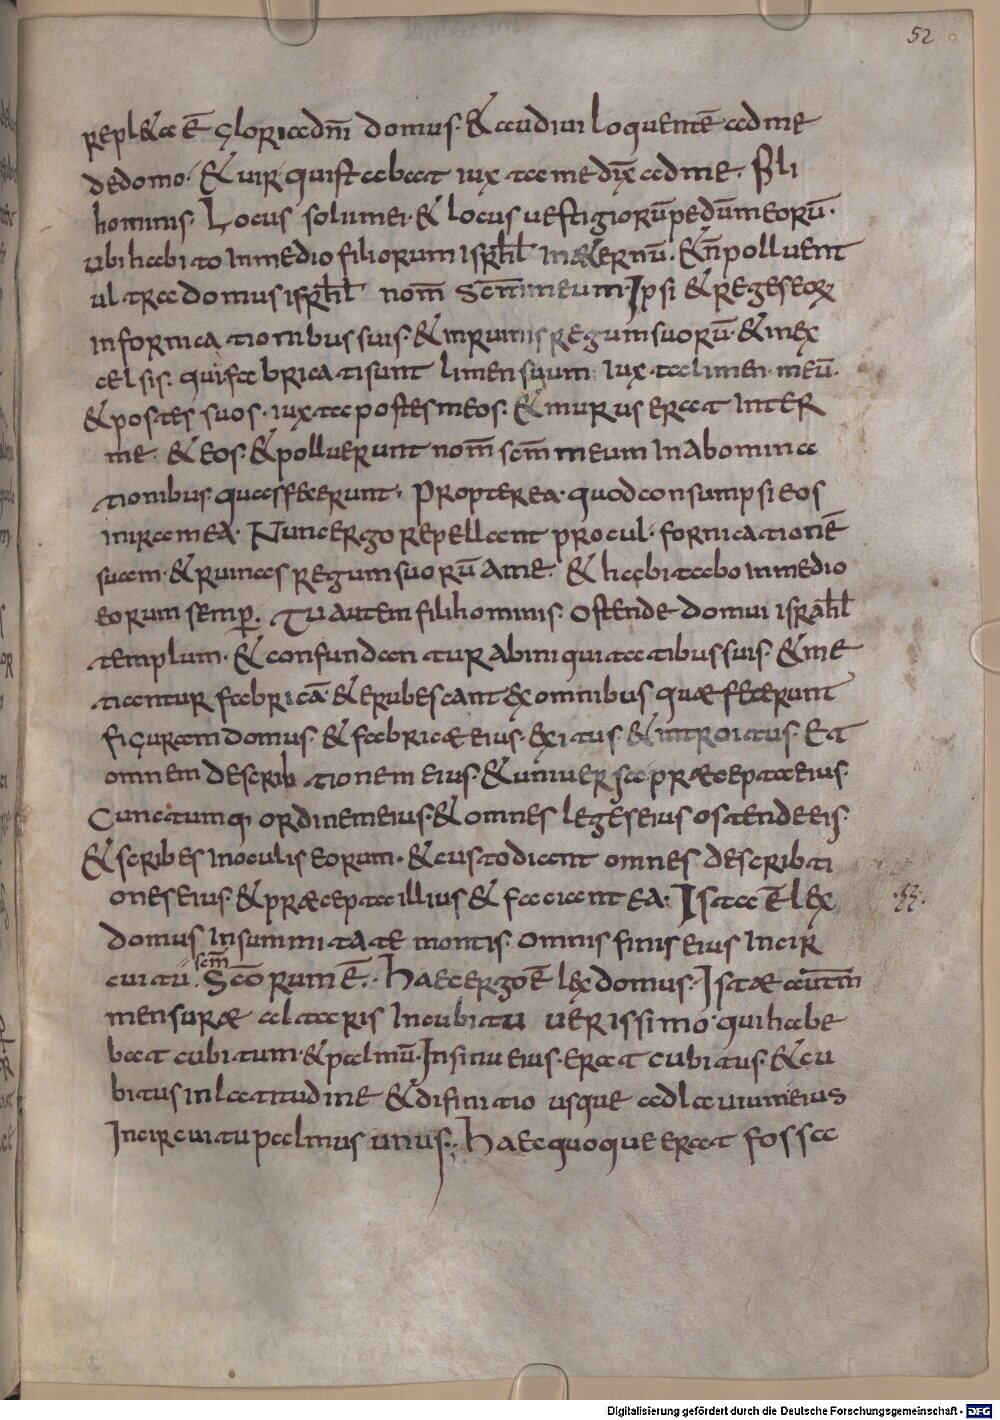 52
repl&a ē gloria dn̄i domus · & audiui loquentē ad me
de domo · & uir qui stabat iuxta me dix̄ ad me · Fili
hominis · Locus solii mei · & locus uestigiorū pedūm eorū ·
ubi habito in medio filiorum isrh̄l in aeternū · & n̄ polluent
ultra domus isrh̄l nom̄ sc̄m meum · Ipsi & reges eorꝝ
in fornicationibus suis · & in ruinis regum suorū · & in ex
celsis · qui fabricati sunt limen suum iuxta limen meū ·
& postes suos · iuxta postes meos · & murus erat inter
me · & eos · & polluerunt nom̄ sc̄m meum in abomina
tionibus · quas fecerunt · Propterea · quod consumpsi eos
in ira mea · Nunc ergo repellant procul · fornicationē
suam · & ruinas regum suorū a me · & habitabo in medio
eorum semꝑ · Tu autem fili hominis · ostende domui israh̄l
templum · & confundantur ab iniquitatibus suis · & me
tiantur fabricā · & erubescant ex omnibus quae fecerunt
figuram domus · & fabricae eius · exitus · & introitus · Et
omnem describtionem eius · & uniuersa praecepta eius ·
Cunctumq; ordinem eius · & omnes leges eius ostende eis ·
& scribes in oculis eorum · & custodiant omnes describti
ones eius · & praecepta illius & faciant ea : Ista ē lex
·53·
domus in summitate montis · omnis finis eius in cir
cuitū · sc̄m sc̄orum ē · Haec ergo ē lex domus · Istae autm̄
mensurae altaris in cubitu uerissimo · qui habe
bat cubitum · & palmū · In sinu eius · erat cubitus · & cu
bitus in latitudine & difinitio usque ad labium eius
in circuitu palmus unus ; Haec quoque erat fossa
Digitalisierung gefördert durch die Deutsche Forschungsgemeinschaft - DFG